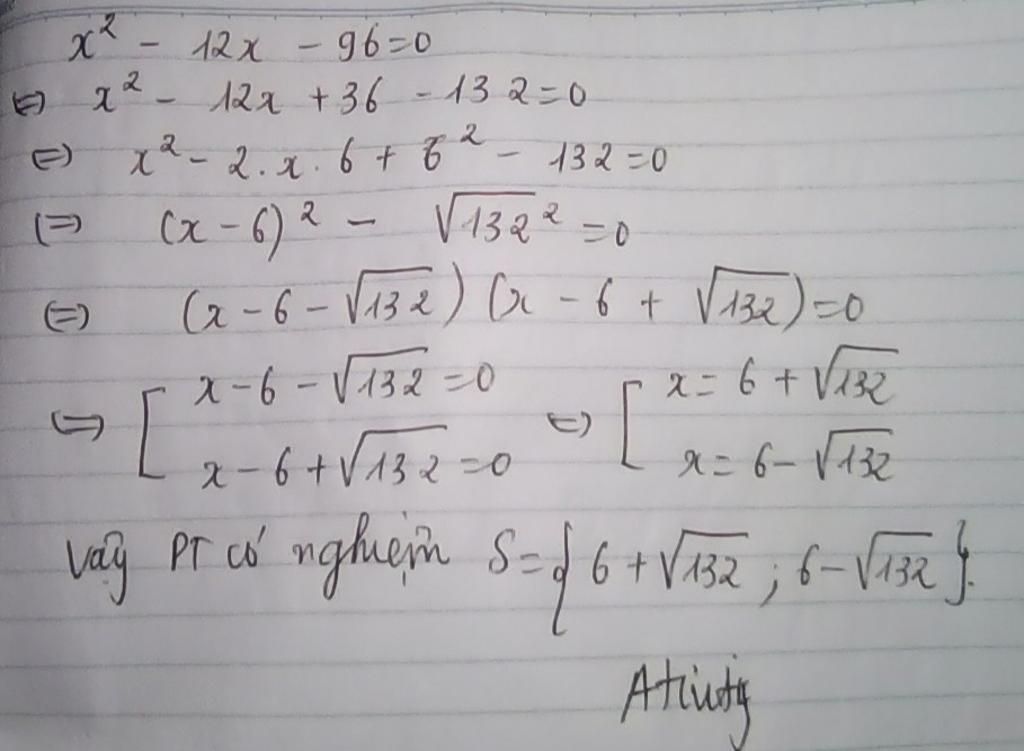 x² - 12x - 96=0
⇔ x² - 12x + 36 - 132=0
⇔ x² - 2.x.6 + 6² - 132=0
⇔ (x-6)² - √132² =0
⇔ (x-6-√132)(x-6+√132)=0
⇔ [ x-6-√132=0 ⇔ [ x= 6+√132
x-6+√132=0 x= 6-√132
Vậy PT có nghiệm S={6+√132; 6-√132}.